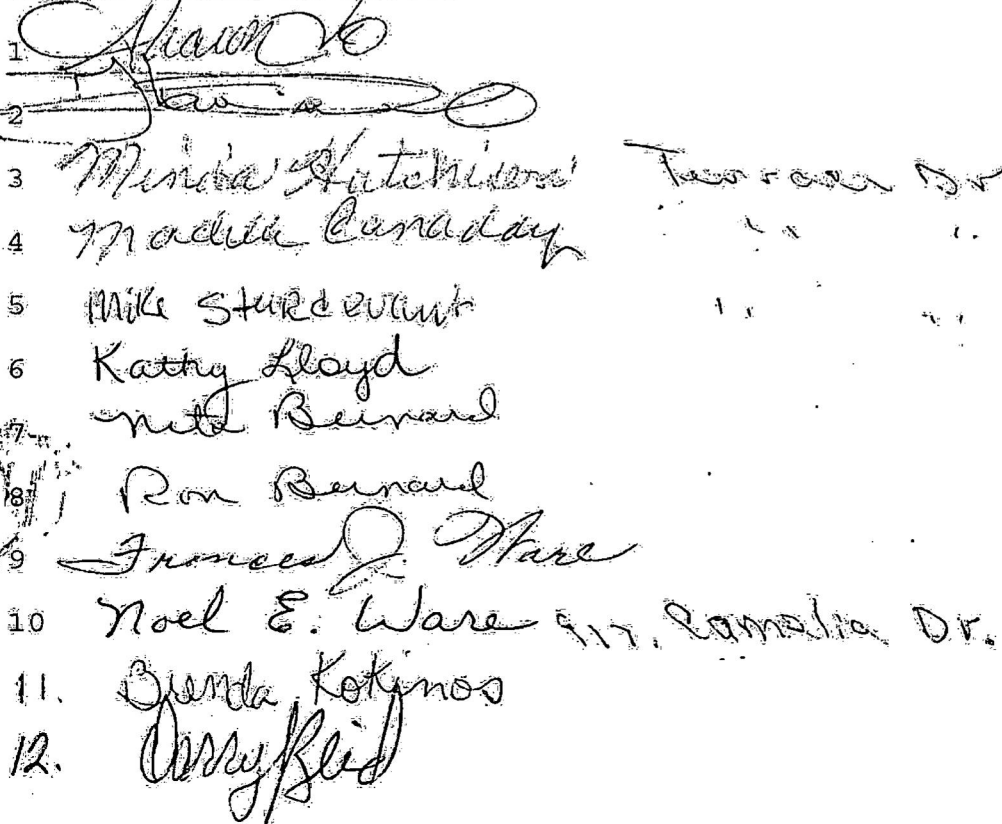 1 Sharon
2
3 Minda Hutchison Terrace Dr
4 Canaday " "
5 Mike Sturdevant " "
6 Kathy Lloyd
7 Nita Bernard
8 Ron Bernard
9 Frances J. Ware
10 Noel E. Ware 917. Camalia Dr.
11. Brenda Kokinos
12. Reid